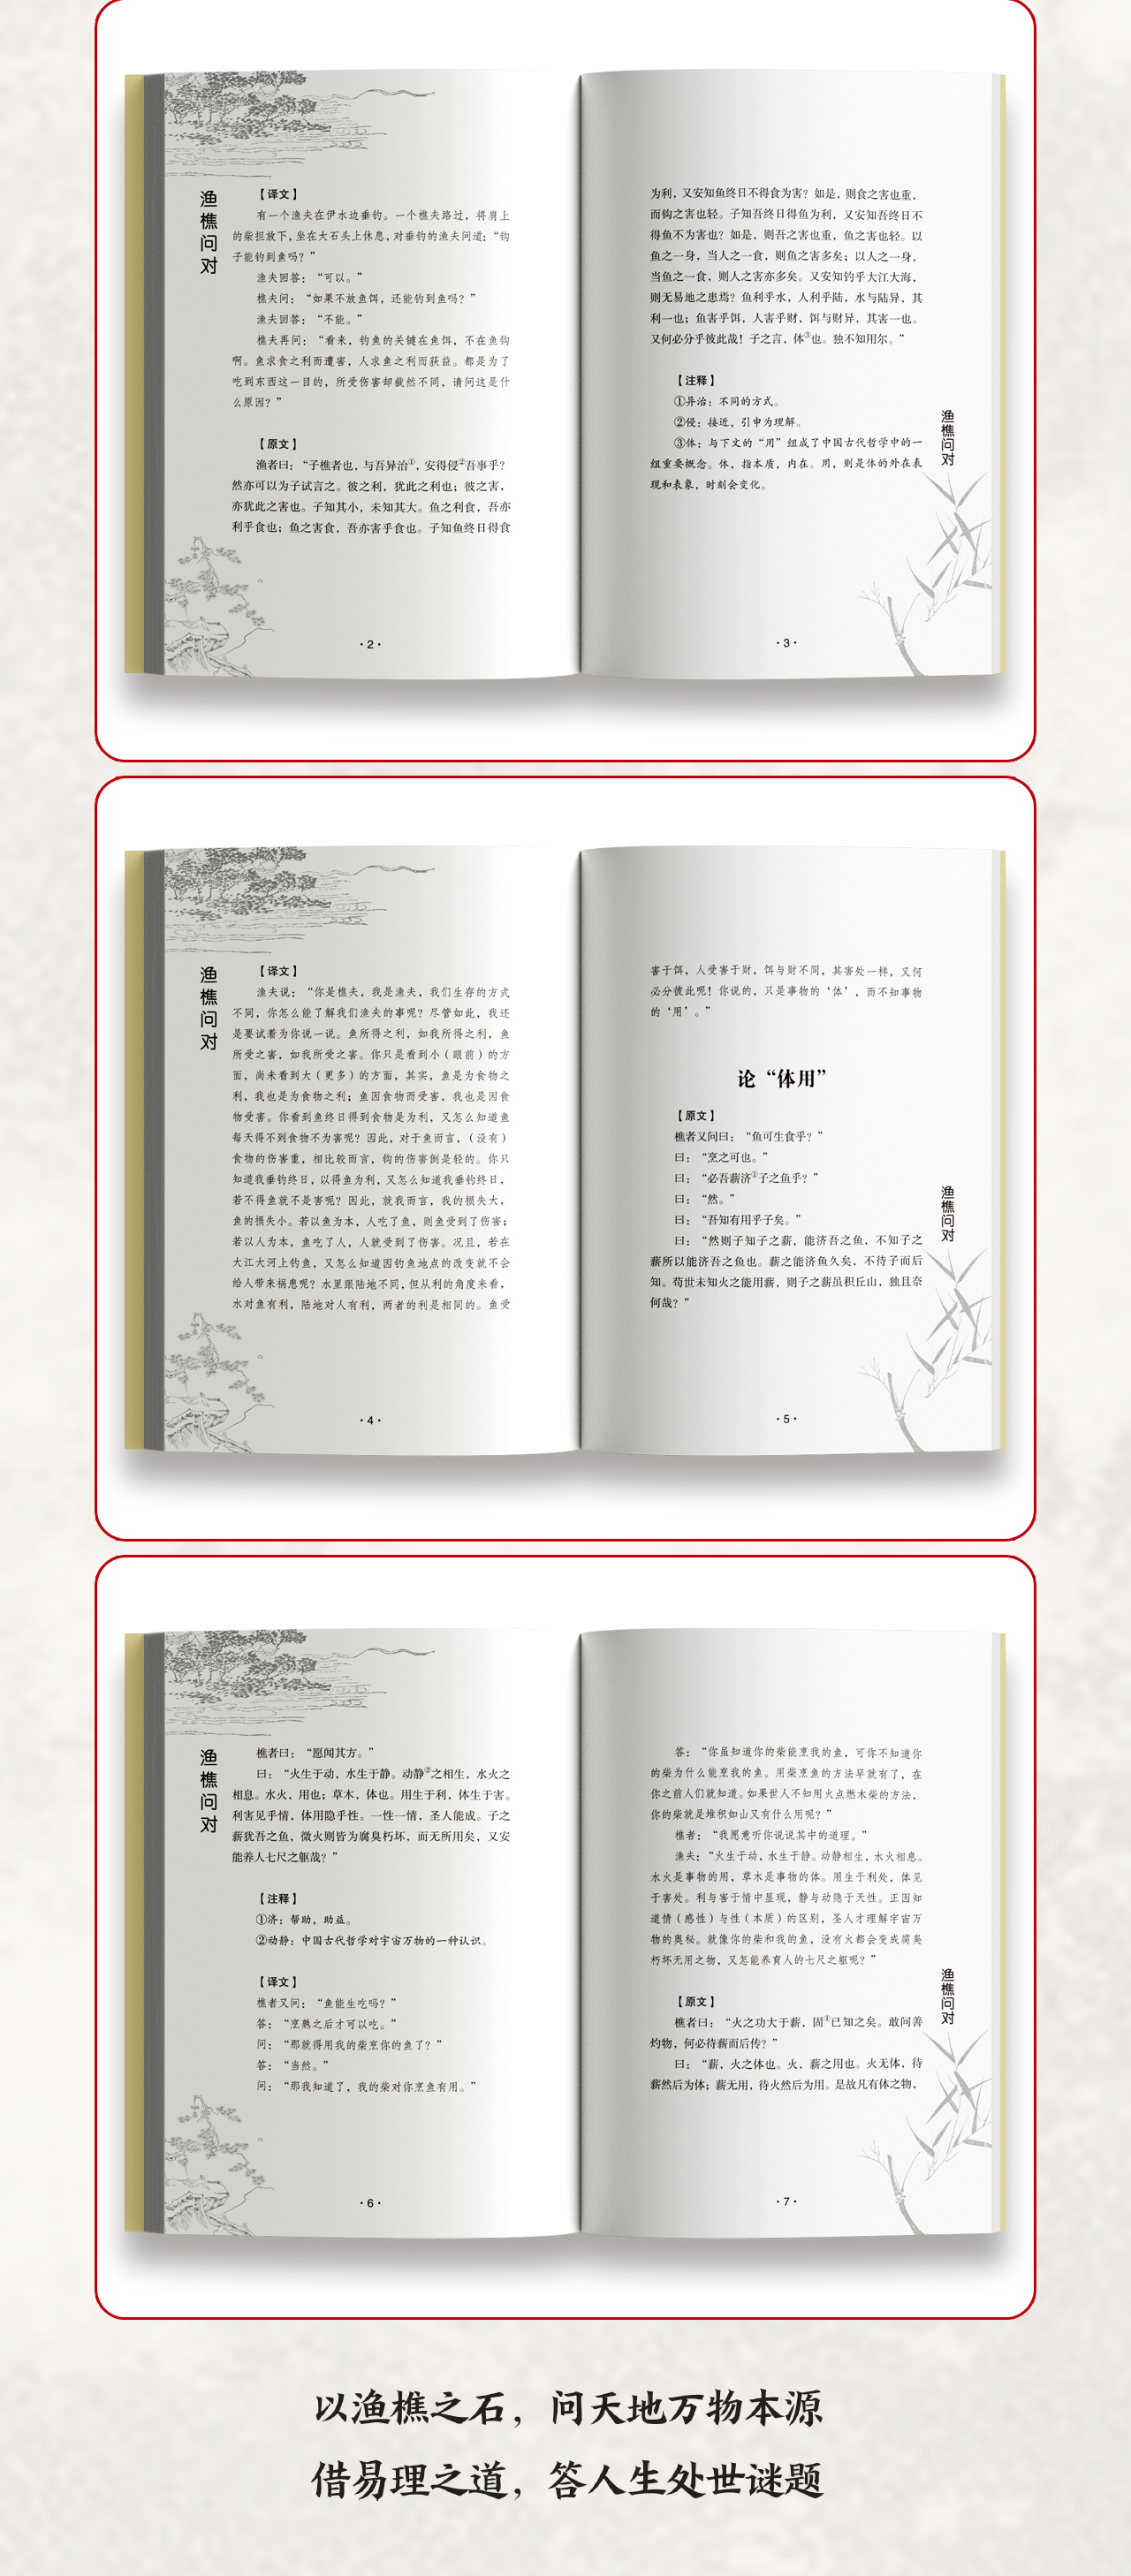 渔樵问对
【译文】
有一个渔夫在伊水边垂钓。一个樵夫路过，将肩上
的柴担放下，坐在大石头上休息，对垂钓的渔夫问道：“钩
子能钓到鱼吗？”
渔夫回答：“可以。”
樵夫问：“如果不放鱼饵，还能钓到鱼吗？”
渔夫回答：“不能。”
樵夫再问：“看来，钓鱼的关键在鱼饵，不在鱼钩
啊。鱼求食之利而遭害，人求鱼之利而获益。都是为了
吃到东西这一目的，所受伤害却截然不同，请问这是什
么原因？”
【原文】
渔者曰：“子樵者也，与吾异治①，安得侵②吾事乎？
然亦可以为子试言之。彼之利，犹此之利也；彼之害，
亦犹此之害也。子知其小，未知其大。鱼之利食，吾亦
利乎食也；鱼之害食，吾亦害乎食也。子知鱼终日得食
·2·
为利，又安知鱼终日不得食为害？如是，则食之害也重，
而钩之害也轻。子知吾终日得鱼为利，又安知吾终日不
得鱼不为害也？如是，则吾之害也重，鱼之害也轻。以
鱼之一身，当人之一食，则鱼之害多矣；以人之一身，
当鱼之一食，则人之害亦多矣。又安知钓乎大江大海，
则无易地之患焉？鱼利乎水，人利乎陆，水与陆异，其
利一也；鱼害乎饵，人害乎财，饵与财异，其害一也。
又何必分乎彼此哉！子之言，体③也。独不知用尔。”
【注释】
①异治：不同的方式。
②侵：接近，引申为理解。
③体：与下文的“用”组成了中国古代哲学中的一
组重要概念。体，指本质，内在。用，则是体的外在表
现和表象，时刻会变化。
渔樵问对
·3·
渔樵问对
【译文】
渔夫说：“你是樵夫，我是渔夫，我们生存的方式
不同，你怎么能了解我们渔夫的事呢？尽管如此，我还
是要试着为你说一说。鱼所得之利，如我所得之利，鱼
所受之害，如我所受之害。你只是看到小（眼前）的方
面，尚未看到大（更多）的方面，其实，鱼是为食物之
利，我也是为食物之利；鱼因食物而受害，我也是因食
物受害。你看到鱼终日得到食物是为利，又怎么知道鱼
每天得不到食物不为害呢？因此，对于鱼而言，（没有）
食物的伤害重，相比较而言，钩的伤害倒是轻的。你只
知道我垂钓终日，以得鱼为利，又怎么知道我垂钓终日，
若不得鱼就不是害呢？因此，就我而言，我的损失大，
鱼的损失小。若以鱼为本，人吃了鱼，则鱼受到了伤害；
若以人为本，鱼吃了人，人就受到了伤害。况且，若在
大江大河上钓鱼，又怎么知道因钓鱼地点的改变就不会
给人带来祸患呢？水里跟陆地不同，但从利的角度来看，
水对鱼有利，陆地对人有利，两者的利是相同的。鱼受
·4·
害于饵，人受害于财，饵与财不同，其害处一样，又何
必分彼此呢！你说的，只是事物的‘体’，而不知事物
的‘用’。”
论“体用”
【原文】
樵者又问曰：“鱼可生食乎？”
曰：“烹之可也。”
曰：“必吾薪济①子之鱼乎？”
曰：“然。”
曰：“吾知有用乎子矣。”
曰：“然则子知子之薪，能济吾之鱼，不知子之
薪所以能济吾之鱼也。薪之能济鱼久矣，不待子而后
知。苟世未知火之能用薪，则子之薪虽积丘山，独且奈
何哉？”
渔樵问对
·5·
渔樵问对
樵者曰：“愿闻其方。”
曰：“火生于动，水生于静。动静②之相生，水火之
相息。水火，用也；草木，体也。用生于利，体生于害。
利害见乎情，体用隐乎性。一性一情，圣人能成。子之
薪犹吾之鱼，微火则皆为腐臭朽坏，而无所用矣，又安
能养人七尺之躯哉？”
【注释】
①济：帮助，助益。
②动静：中国古代哲学对宇宙万物的一种认识。
【译文】
樵者又问：“鱼能生吃吗？”
答：“烹熟之后才可以吃。”
问：“那就得用我的柴烹你的鱼了？”
答：“当然。”
问：“那我知道了，我的柴对你烹鱼有用。”
·6·
答：“你虽知道你的柴能烹我的鱼，可你不知道你
的柴为什么能烹我的鱼。用柴烹鱼的方法早就有了，在
你之前人们就知道。如果世人不知用火点燃木柴的方法，
你的柴就是堆积如山又有什么用呢？”
樵者：“我愿意听你说说其中的道理。”
渔夫：“火生于动，水生于静。动静相生，水火相息。
水火是事物的用，草木是事物的体。用生于利处，体见
于害处。利与害于情中显现，静与动隐于天性。正因知
道情（感性）与性（本质）的区别，圣人才理解宇宙万
物的奥秘。就像你的柴和我的鱼，没有火都会变成腐臭
朽坏无用之物，又怎能养育人的七尺之躯呢？”
【原文】
樵者曰：“火之功大于薪，固①已知之矣。敢问善
灼物，何必待薪而后传？”
曰：“薪，火之体也。火，薪之用也。火无体，待
薪然后为体；薪无用，待火然后为用。是故凡有体之物，
渔樵问对
·7·
以渔樵之石，问天地万物本源
借易理之道，答人生处世谜题